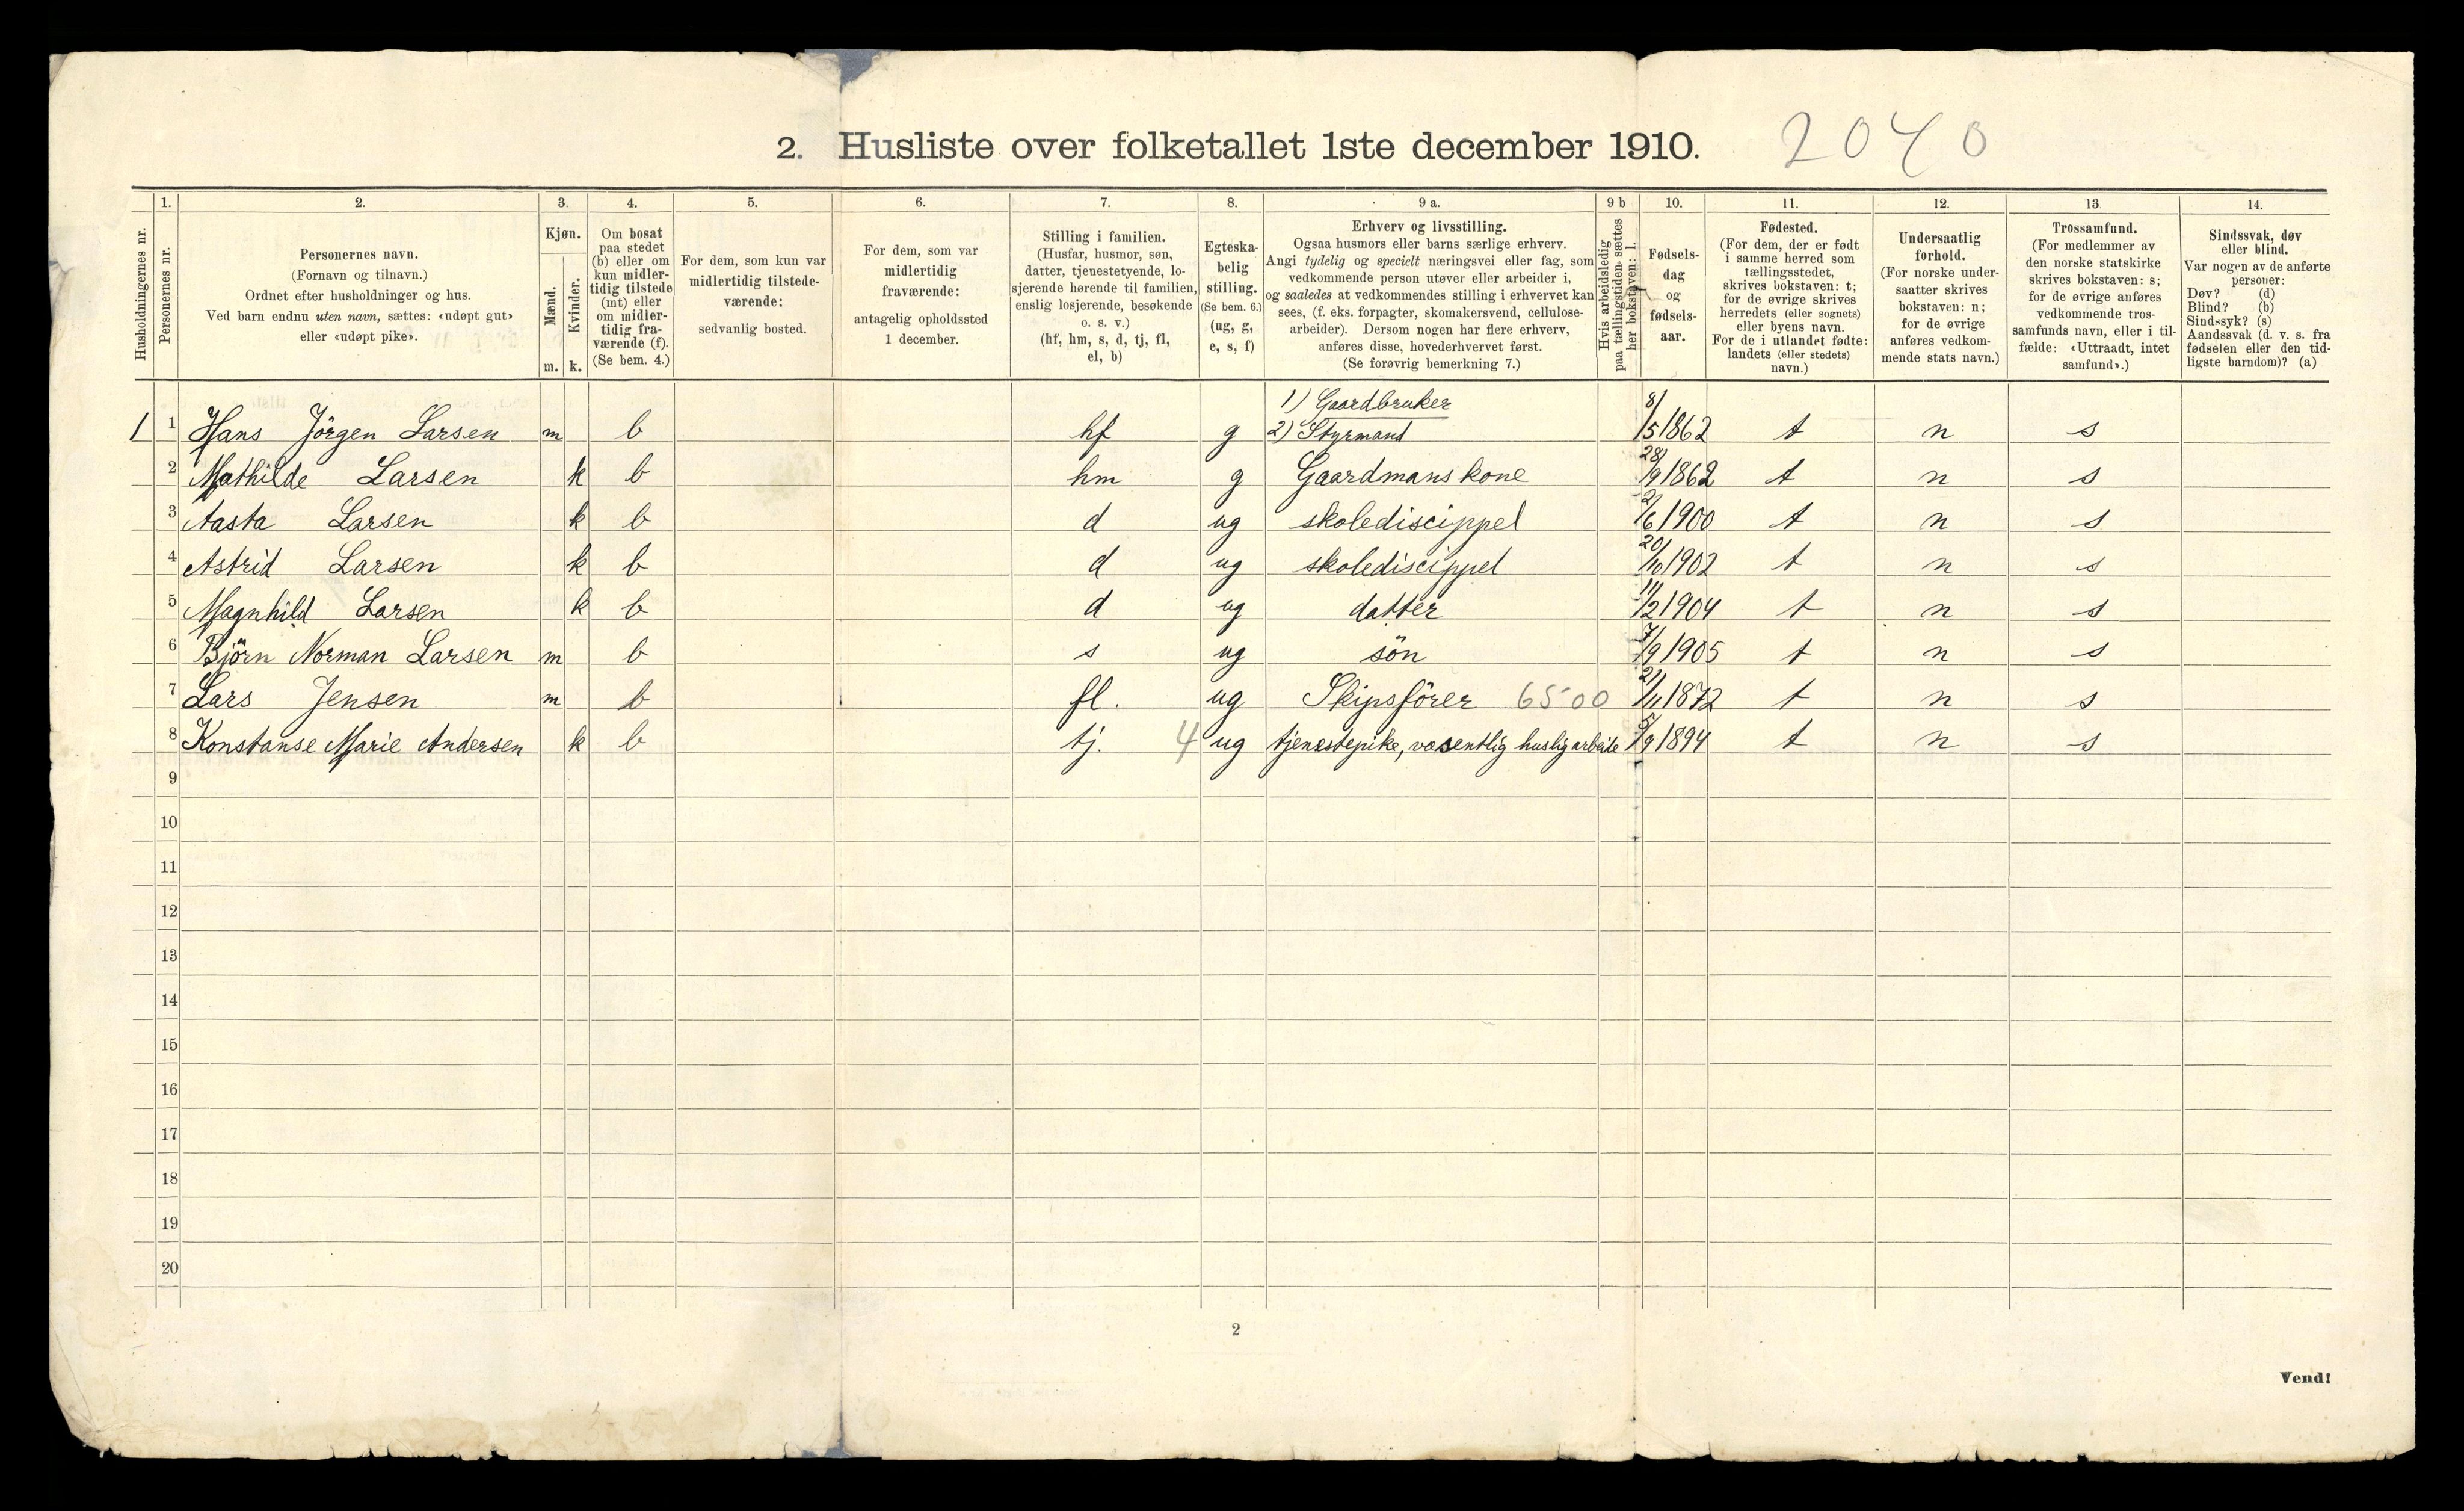 2. Husliste over folketallet 1ste december 1910. 2040
Husholdningernes nr.
1.
Personernes nr.
2.
Personernes navn.
(Fornavn og tilnavn.)
Ordnet efter husholdninger og hus.
Ved barn endnu uten navn, sættes: «udøpt gut»
eller «udøpt pike».
3.
Kjøn.
Mænd.
m.
Kvinder.
k.
4.
Om bosat
paa stedet
(b) eller om
kun midler-
tidig tilstede
(mt) eller
om midler-
tidig fra-
værende (f).
(Se bem. 4.)
5.
For dem, som kun var
midlertidig tilstede-
værende:
sedvanlig bosted.
6.
For dem, som var
midlertidig
fraværende:
antagelig opholdssted
1 december.
7.
Stilling i familien.
(Husfar, husmor, søn,
datter, tjenestetyende, lo-
sjerende hørende til familien,
enslig losjerende, besøkende
o. s. v.)
(hf, hm, s, d, tj, fl,
el, b)
8.
Egteska-
belig
stilling.
(Se bem. 6.)
(ug, g,
e, s, f)
9 a.
Erhverv og livsstilling.
Ogsaa husmors eller barns særlige erhverv.
Angi tydelig og specielt næringsvei eller fag, som
vedkommende person utøver eller arbeider i,
og saaledes at vedkommendes stilling i erhvervet kan
sees, (f. eks. forpagter, skomakersvend, cellulose-
arbeider). Dersom nogen har flere erhverv,
anføres disse, hovederhvervet først.
(Se forøvrig bemerkning 7.)
9 b
Hvis arbeidsledig
paa tællingstiden sættes
her bokstaven: l.
10.
Fødsels-
dag
og
fødsels-
aar.
11.
Fødested.
(For dem, der er født
i samme herred som
tællingsstedet,
skrives bokstaven: t;
for de øvrige skrives
herredets (eller sognets)
eller byens navn.
For de i utlandet fødte:
landets (eller stedets)
navn.)
12.
Undersaatlig
forhold.
(For norske under-
saatter skrives
bokstaven: n;
for de øvrige
anføres vedkom-
mende stats navn.)
13.
Trossamfund.
(For medlemmer av
den norske statskirke
skrives bokstaven: s;
for de øvrige anføres
vedkommende tros-
samfunds navn, eller i til-
fælde: «Uttraadt, intet
samfund».)
14.
Sindssvak, døv
eller blind.
Var nogen av de anførte
personer:
Døv? (d)
Blind? (b)
Sindssyk? (s)
Aandssvak (d. v. s. fra
fødselen eller den tid-
ligste barndom)? (a)
1) Gaardbruker
1 1 Hans Jörgen Larsen m b hf g 2) Styrmand 8/5 1862 t n s
2 Mathilde Larsen k b hm g Gaardmanskone 28/9 1862 t n s
3 Aasta Larsen k b d ug skolediscippel 2/6 1900 t n s
4 Astrid Larsen k b d ug skolediscippel 20/10 1902 t n s
5 Magnhild Larsen k b d ug datter 11/2 1904 t n s
6 Björn Norman Larsen m b s ug sön 7/9 1905 t n s
7 Lars Jensen m b fl. ug Skipsförer 6500 21/11 1872 t n s
8 Konstanse Marie Andersen k b tj. 4 ug tjenestepike, væsentlig huslig arbeide 5/9 1894 t n s
9
10
11
12
13
14
15
16
17
18
19
20
2
Vend!